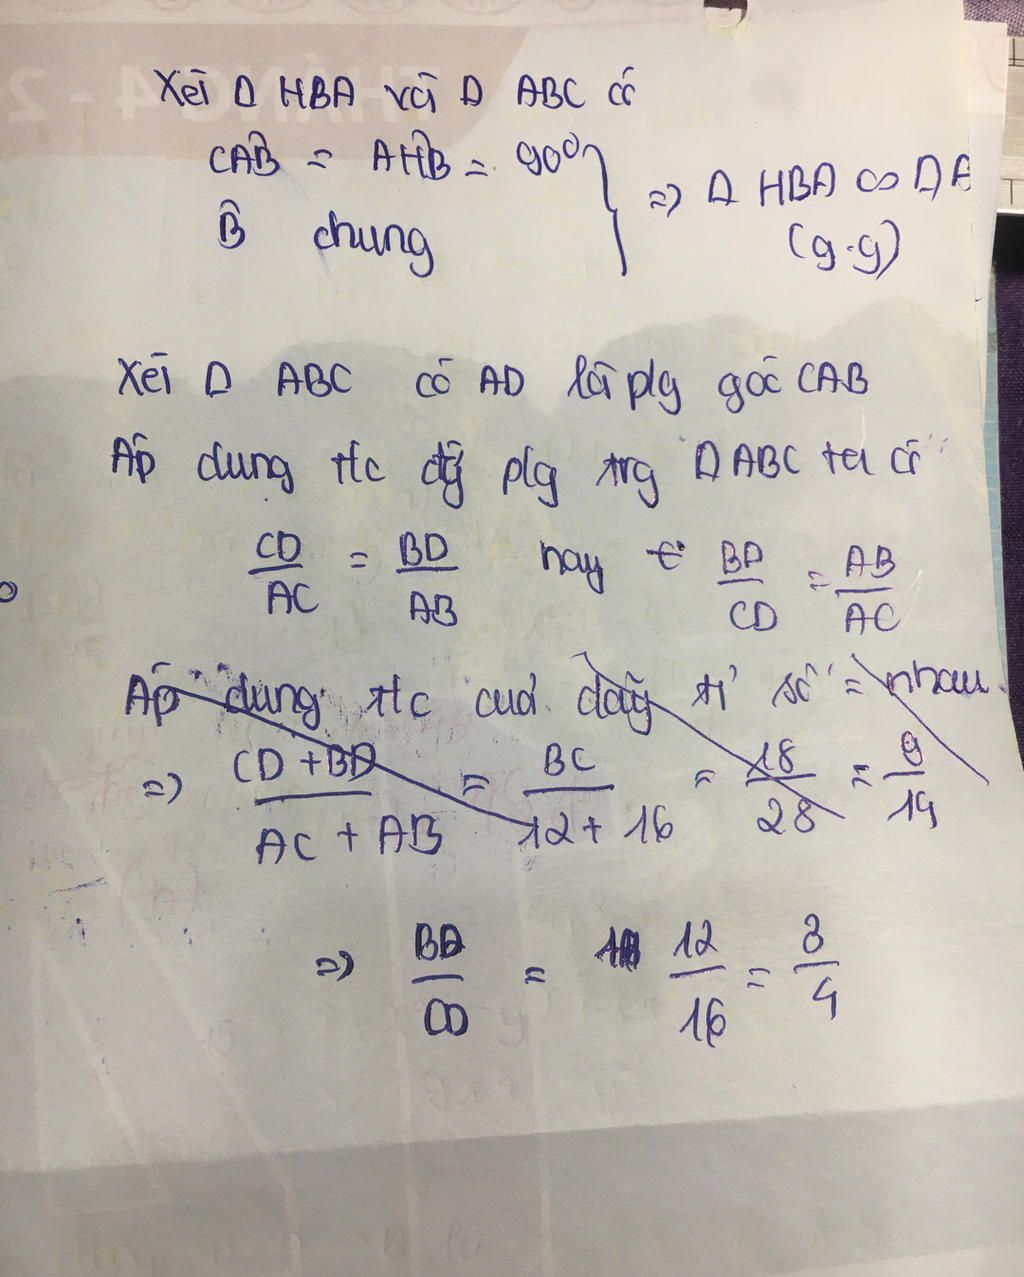 Xét Δ HBA và Δ ABC có
CÂB = AĤB = 90°
B̂ chung
=> Δ HBA ∽ Δ A
(g.g)
Xét Δ ABC có AD là plg góc CAB
Áp dung t/c đg plg trg Δ ABC ta có
CD/AC = BD/AB hay BD/CD = AB/AC
Áp dung t/c cuả daỹ tỉ số = nhau
=> CD + BD / AC + AB = BC / 12 + 16 = 18/28 = 9/14
=> BD/CD = 12/16 = 3/4